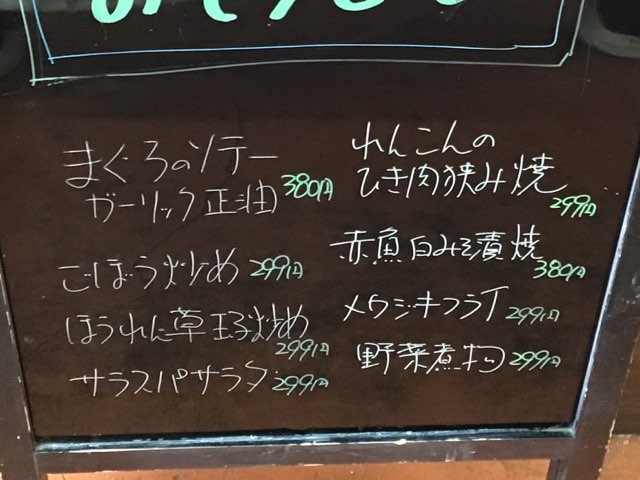 まぐろのソテー
ガーリック正油 380円
ごぼう炒め 299円
ほうれん草玉子炒め
299円
サラスパサラダ 299円
れんこんの
ひき肉狭み焼
299円
赤魚白みそ漬焼
380円
メカジキフライ 299円
野菜煮物 299円